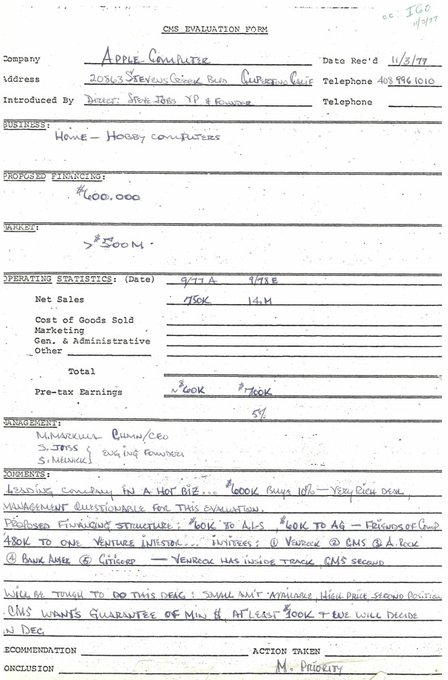 cc: IGO
11/3/77
CMS EVALUATION FORM
Company APPLE COMPUTER Date Rec'd 11/3/77
Address 20863 STEVENS CREEK BLVD CUPERTINO CALIF Telephone 408 996 1010
Introduced By DIRECT: STEVE JOBS VP & FOUNDER Telephone
BUSINESS:
HOME - HOBBY COMPUTERS
PROPOSED FINANCING:
$600,000
MARKET:
> $500M
OPERATING STATISTICS: (Date) 9/77 A 9/78 E
Net Sales 750K 14.M
Cost of Goods Sold
Marketing
Gen. & Administrative
Other
Total
Pre-tax Earnings ~$60K $700K
5%
MANAGEMENT:
M. MARKULA CHMN/CEO
S. JOBS } ENG'ING FOUNDERS
S. 
COMMENTS:
LEADING COMPANY IN A HOT BIZ... $600K BUYS 10% - VERY RICH DEAL,
MANAGEMENT QUESTIONABLE FOR THIS EVALUATION.
PROPOSED FINANCING STRUCTURE: $60K TO , $60K TO AG - FRIENDS OF COMP
480K TO ONE VENTURE INVESTOR... INVITEES: ① VENROCK ② CMS ③ A. ROCK
④ BANK AMER ⑤ CITICORP - VENROCK HAS INSIDE TRACK, CMS SECOND
WILL BE TOUGH TO DO THIS DEAL: SMALL AM'T AVAILABLE, HIGH PRICE, SECOND POSITION
CMS WANTS GUARANTEE OF MIN $, AT LEAST $300K + WE WILL DECIDE
IN DEC
RECOMMENDATION ACTION TAKEN
CONCLUSION M. PRIORITY